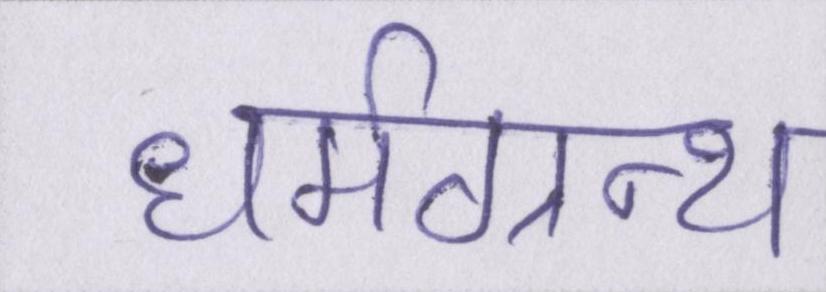 धर्मग्रन्थ